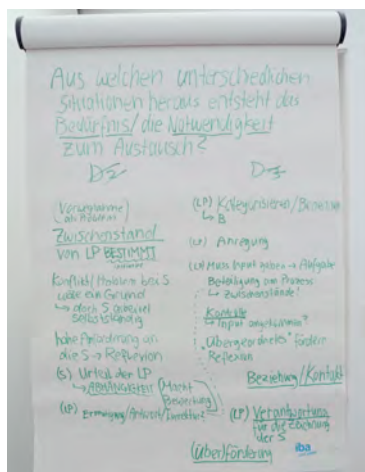 Aus welchen unterschiedlichen
Situationen heraus entsteht das
Bedürfnis/die Notwendigkeit
zum Austausch?
Zwischenstand
von LP BESTIMMT
Konflikt/Problem bei S
wäre ein Grund
↳ doch S
selbstständig
hohe Anforderung an
die S → Reflexion
(S) Urteil der LP
↳ ABHÄNGIGKEIT
Macht
Bewertung
(LP)
(LP) Kategorisieren/
↳ B
(LP) Anregung
(LP) Muss Input geben → Aufgabe
Beteiligung am Prozess
↳ Zwischenstände!
Kontrolle
↳ Input angekommen?
"Übergeordnetes" fördere
Reflexion
Beziehung/Kontakt
(LP) Verantwortung
für die Zeichnung
der S
(Über)förderung
iba